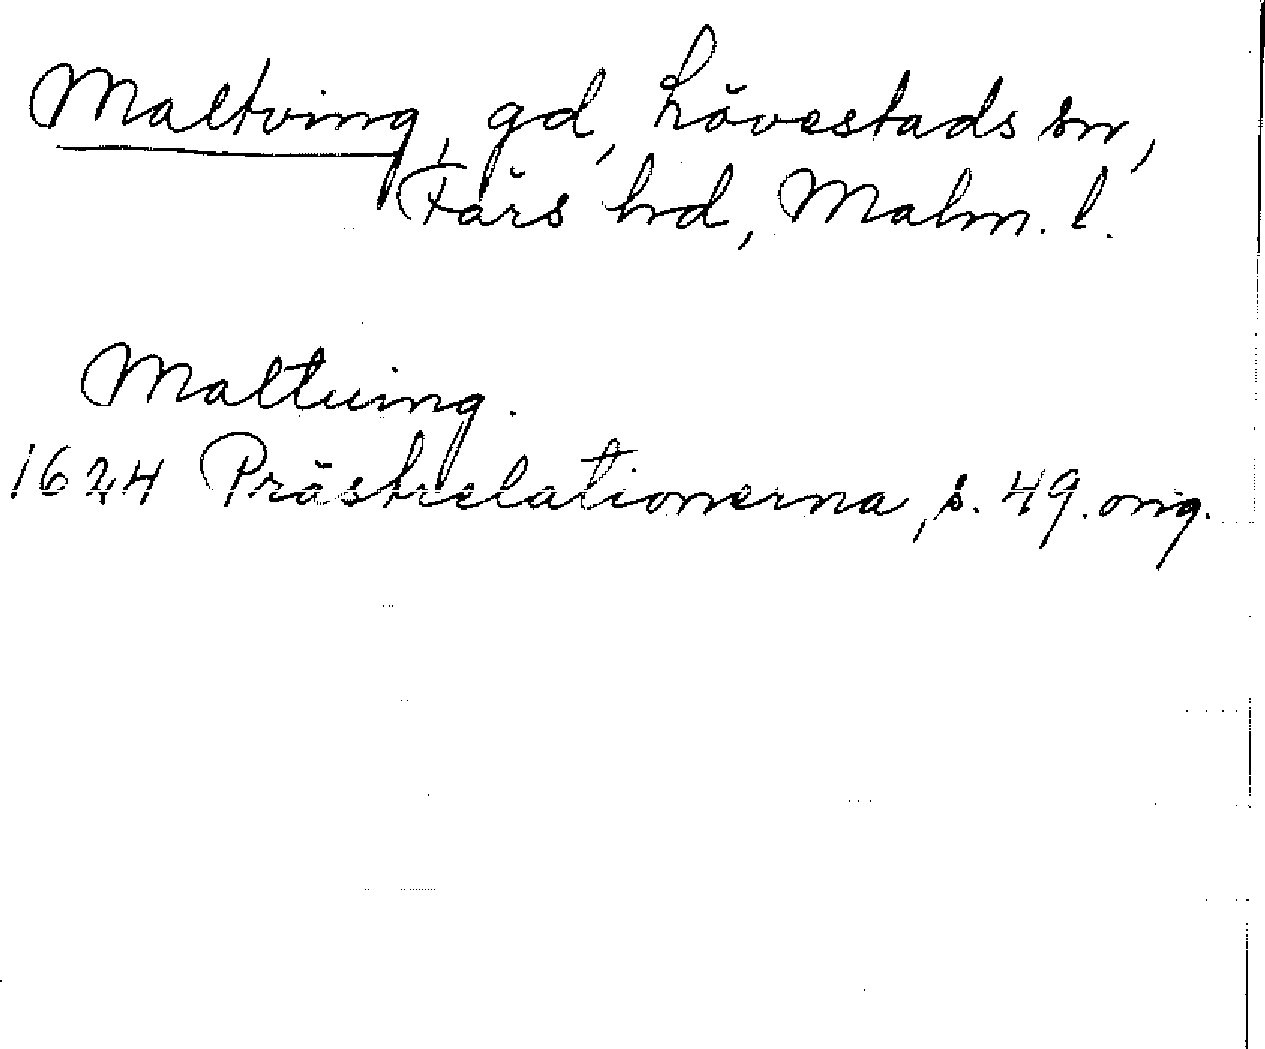 Maltving, gd, Lövestads sn,
Färs hd, Malm. l.
Maltuing.
1624 Prästrelationerna, s. 49. orig.